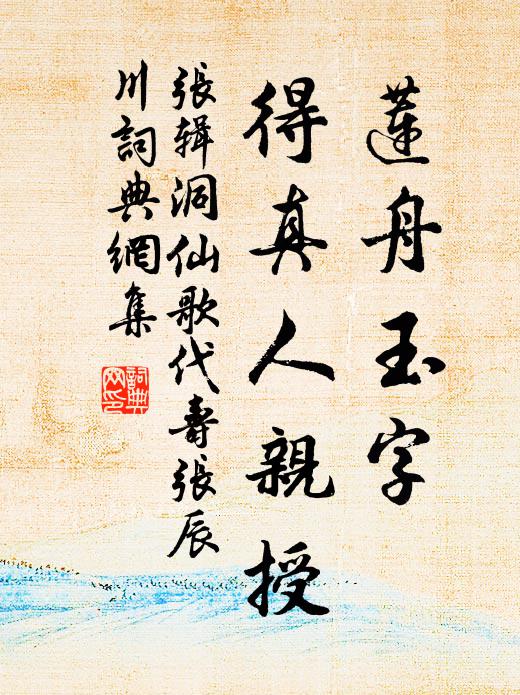 蓮舟玉字
得真人親授
張輯洞仙歌代壽張辰
川詞典網集
詞典
网印